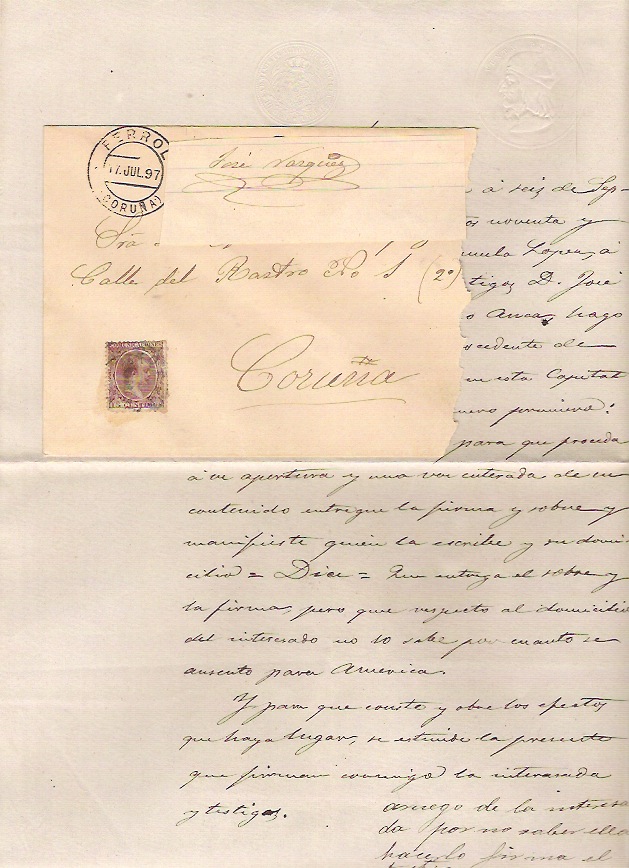 FERROL
17 JUL. 97
(CORUÑA)
José Vazquez
Sra
Calle del Rastro No 1 (2º)
Coruña
COMUNICACIONES
á seis de Sep-
noventa y
Lopez, á
tigos D. José
hago
cedente de
en esta Capital
mero primero:
para que proceda
á su apertura y una vez enterada de su
contenido entregue la firma y sobre y
manifieste quien la escribe y su domi-
cilio = Dice = Que entrega el sobre y
la firma, pero que respecto al domicilio
del interesado no lo sabe por cuanto se
ausentó para America.
Y para que conste y obre los efectos
que haya lugar, se estiende la presente
que firman conmigo la interesada
y testigos.
aruego de la interesa
da por no saber ella
hacerlo firma el